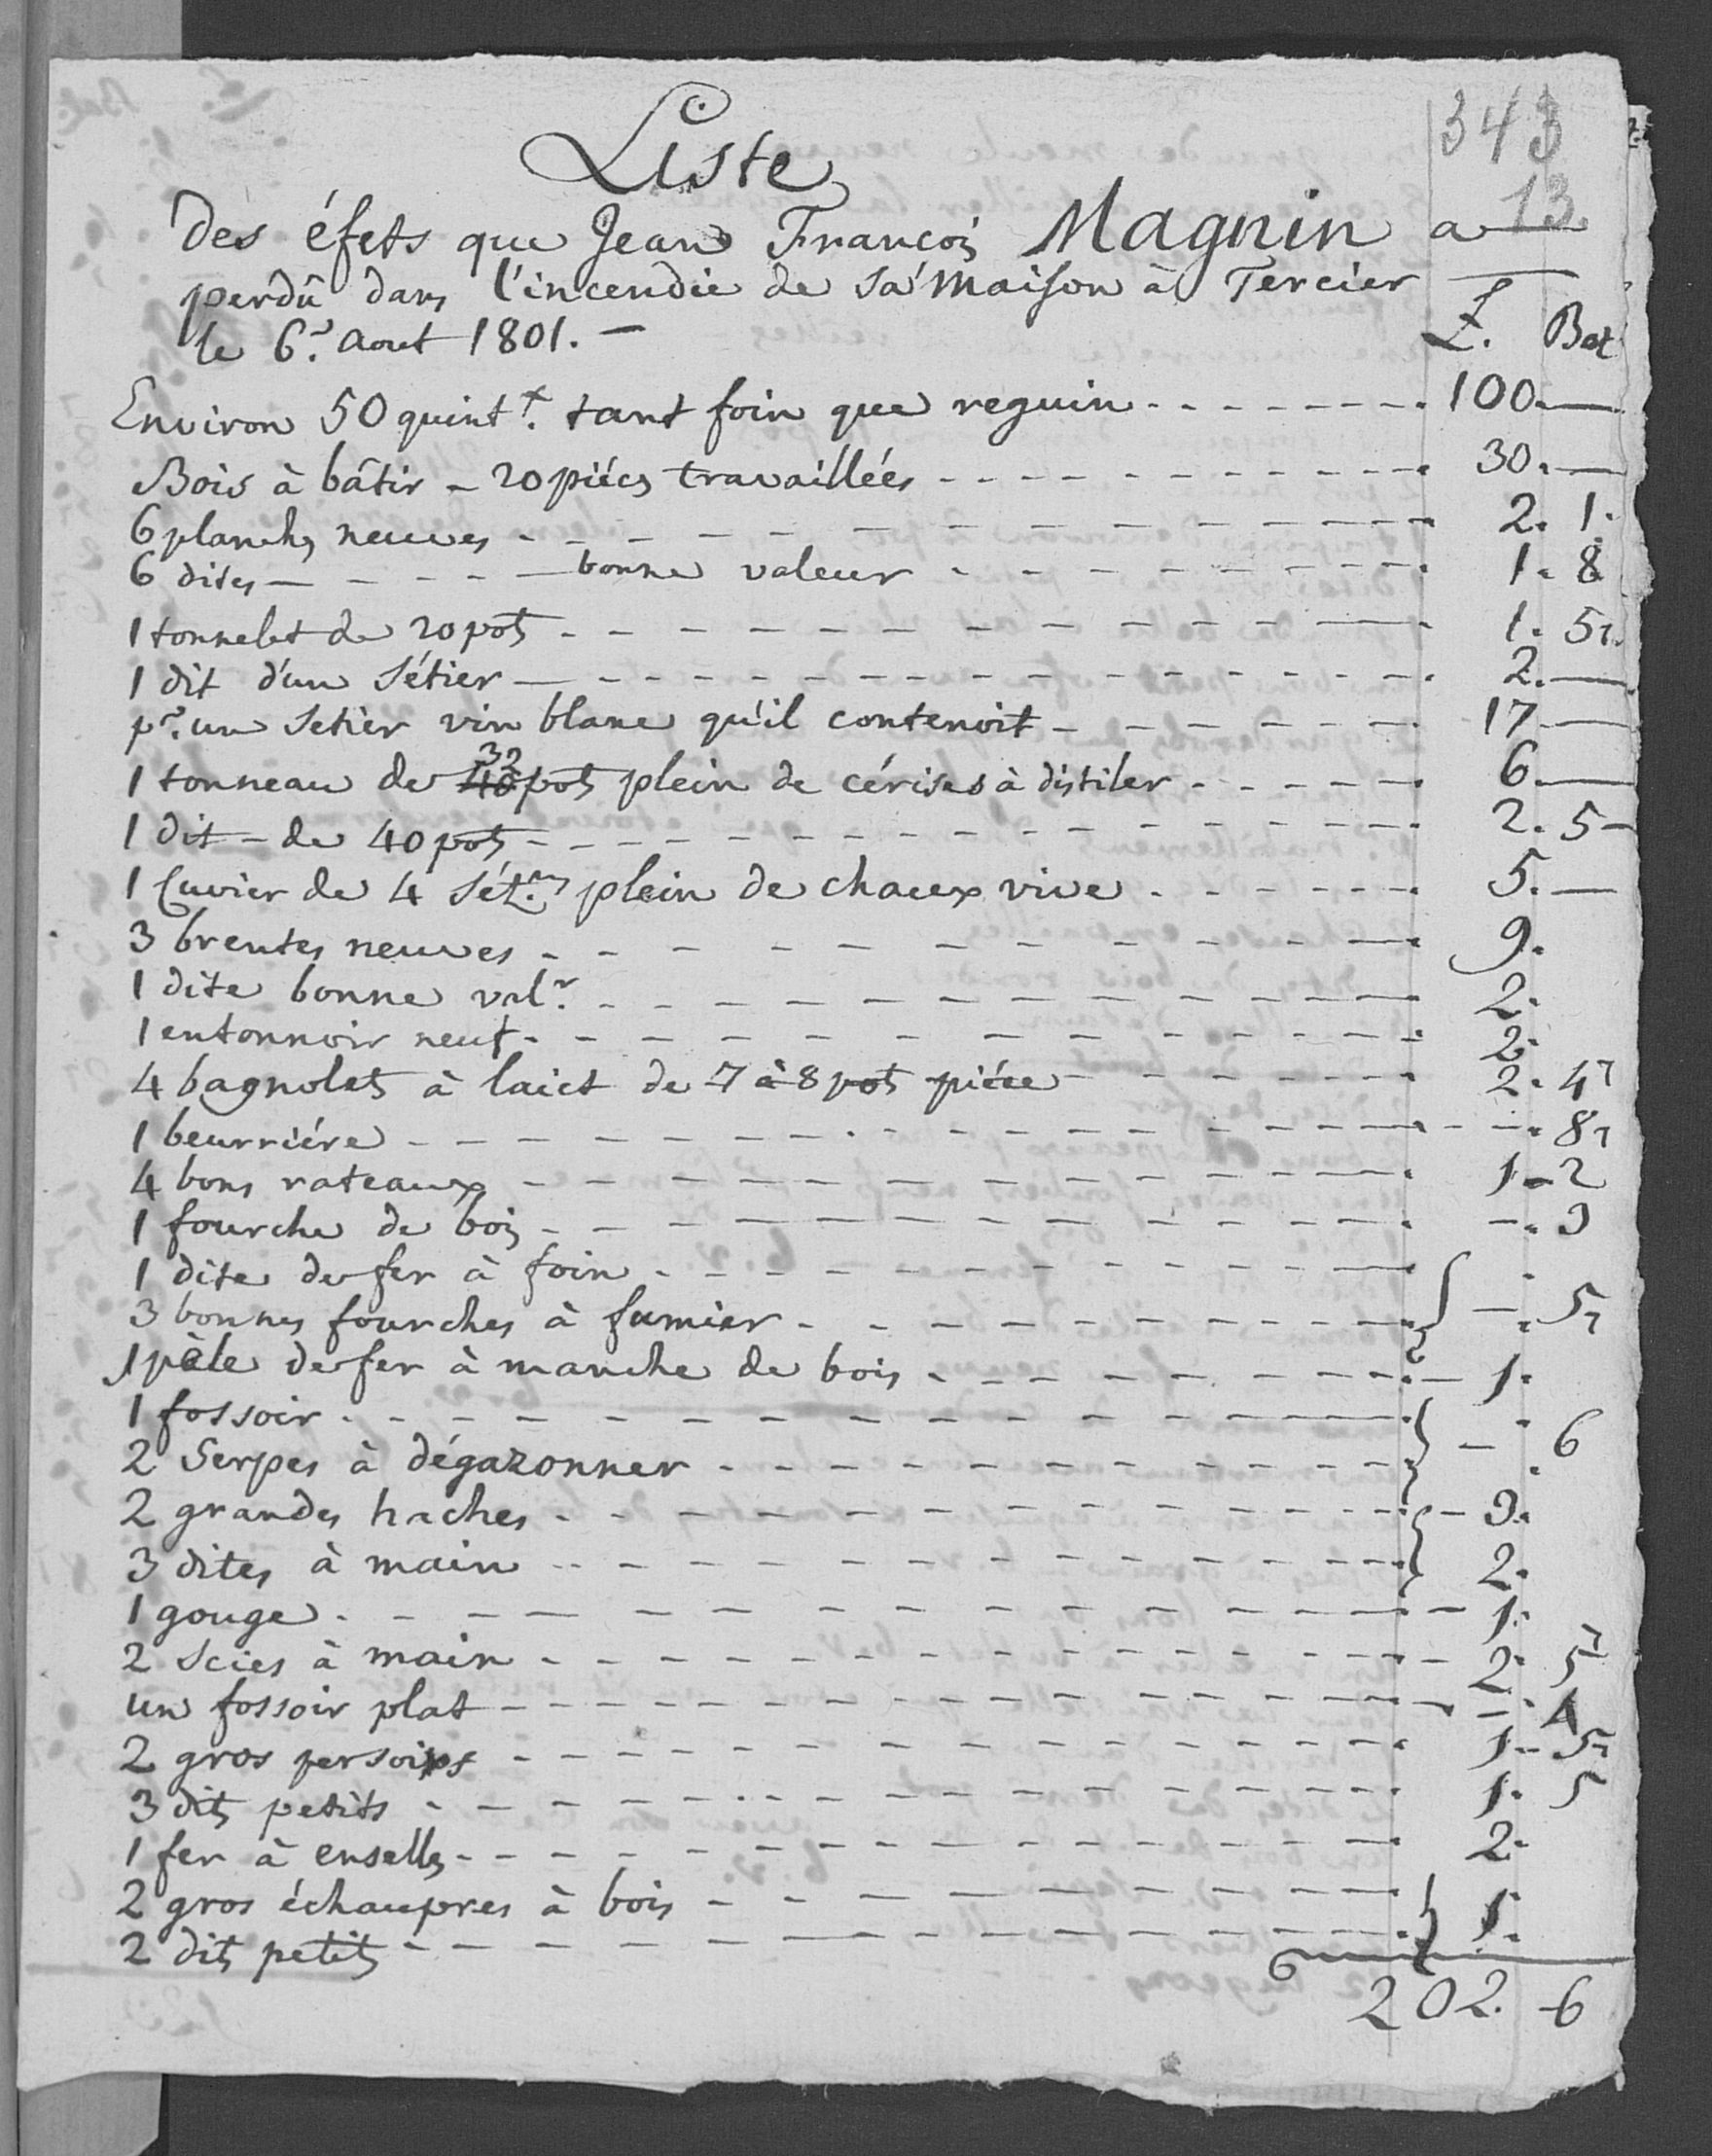 343
13.
Liste
Des éfets que Jean François Magnin a
perdû dans l'incendie de sa maison à Tercier
le 6.e aout 1801. —
£. Bat
Environ 50 quint.x tant foin que reguin - - - 100. —
Bois à bâtir - 20 piéces travaillées - - - 30. —
6 planches neuves - - - 2. 1.
6 dites - - - bonne valeur - - - 1. 8
1 tonnelet de 20 pots - - - 1. 5.
1 dit d'un sétier - - - 2. —
pr. un setier vin blanc qu'il contenoit - - - 17 —
1 tonneau de 40 32 pots plein de cérises à distiler - - - 6. —
1 dit - de 40 pots - - - 2. 5 -
1 Cuvier de 4 sét.ers plein de chaux vive - - - 5. —
3 brentes neuves - - - 9.
1 dite bonne val.r - - - 2.
1 entonnoir neuf - - - 2.
4 bagnolets à laict de 7 à 8 pots piéce - - - 2. 4
1 beurriére - - - 8
4 bons rateaux - - - 1 - 2
1 fourche de bois - - - 3
1 dite de fer à foin - - -
3 bonnes fourches à fumier - - - } — . 5
1 pâle de fer à manche de bois - - - 1.
1 fossoir - - -
2 Serpes à dégazonner - - - } — . 6
2 grandes haches - - - 3.
3 dites à main - - - } 2.
1 gouge - - - 1.
2 scies à main - - - 2. 5
un fossoir plat - - - 4
2 gros persoirs - - - 1 - 5
3 dits petits - - - 1. 5
1 fer à enselles - - - 2.
2 gros échaupres à bois - - -
2 dits petits - - - } 1.
202. - 6